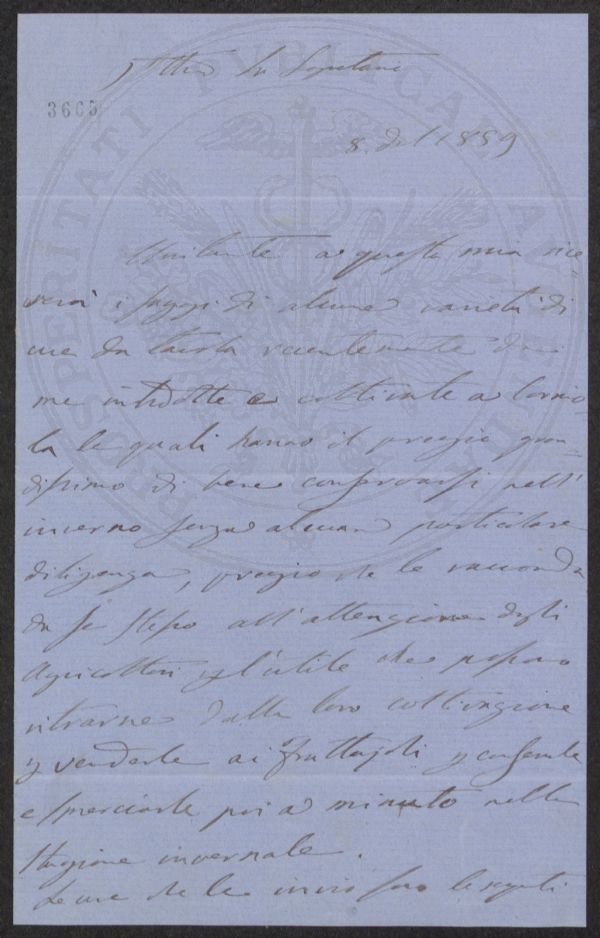 Sr. Segretario
3605
8. 1859
Unitamente a questa mia rice
verà i saggi di alcune varietà di
uve da tavola recentemente da
me introdotte e coltivate a Cornio
la le quali hanno il pregio gran
dissimo di bene conservarsi nell'
inverno senza alcuna particolare
diligenza, pregio che le raccomanda
da se stesso all'attenzione degli
Agricoltori pr l'utile che possono
ritrarne dalla loro coltivazione
pr venderle ai fruttajoli pr conservarle
e smerciarle poi a minuto nella
stagione invernale.
Le uve che le invio sono le seguti
PROSPERITATI PUBLICAE AUGENDAE